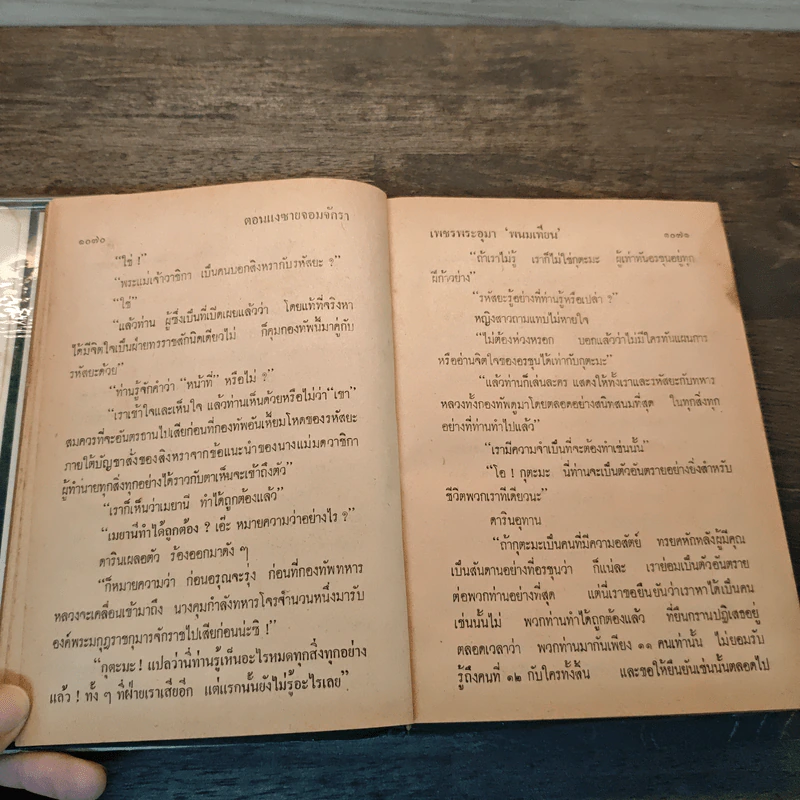 ๑๐๗๐
ตอนแงซายจอมจักรา
“ใช่ !”
“พระแม่เจ้าวาชิกา เป็นคนบอกสิงหรากับรหัสยะ ?”
“ใช่”
“แล้วท่าน ผู้ซึ่งเป็นที่เปิดเผยแล้วว่า โดยแท้ที่จริงหา
ได้มีจิตใจเป็นฝ่ายทรราชสักนิดเดียวไม่ ก็คุมกองทัพนี้มาคู่กับ
รหัสยะด้วย”
“ท่านรู้จักคำว่า “หน้าที่” หรือไม่ ?”
“เราเข้าใจและเห็นใจ แล้วท่านเห็นด้วยหรือไม่ว่า “เขา”
สมควรที่จะอันตรธานไปเสียก่อนที่กองทัพอันเหี้ยมโหดของรหัสยะ
ภายใต้บัญชาสั่งของสิงหราจากข้อแนะนำของนางแม่มดวาชิกา
ผู้ทำนายทุกสิ่งทุกอย่างได้ราวกับตาเห็นจะเข้าถึงตัว”
“เราก็เห็นว่าเมยานี ทำได้ถูกต้องแล้ว”
“เมยานีทำได้ถูกต้อง ? เอ๊ะ หมายความว่าอย่างไร ?”
ดารินเผลอตัว ร้องออกมาดัง ๆ
“ก็หมายความว่า ก่อนอรุณจะรุ่ง ก่อนที่กองทัพทหาร
หลวงจะเคลื่อนเข้ามาถึง นางคุมกำลังทหารโจรจำนวนหนึ่งมารับ
องค์พระมกุฎราชกุมารจักราชไปเสียก่อนน่ะซิ !”
“กุตะมะ ! แปลว่านี่ท่านรู้เห็นอะไรหมดทุกสิ่งทุกอย่าง
แล้ว ! ทั้ง ๆ ที่ฝ่ายเราเสียอีก แต่แรกนั้นยังไม่รู้อะไรเลย”
เพชรพระอุมา ‘พนมเทียน’
๑๐๗๑
“ถ้าเราไม่รู้ เราก็ไม่ใช่กุตะมะ ผู้เท่าทันอรชุนอยู่ทุก
ฝีก้าวย่าง”
“รหัสยะรู้อย่างที่ท่านรู้หรือเปล่า ?”
หญิงสาวถามแทบไม่หายใจ
“ไม่ต้องห่วงหรอก บอกแล้วว่าไม่มีใครทันแผนการ
หรืออ่านจิตใจของอรชุนได้เท่ากับกุตะมะ”
“แล้วท่านก็เล่นละคร แสดงให้ทั้งเราและรหัสยะกับทหาร
หลวงทั้งกองทัพดูมาโดยตลอดอย่างสนิทสนมที่สุด ในทุกสิ่งทุก
อย่างที่ท่านทำไปแล้ว”
“เรามีความจำเป็นที่จะต้องทำเช่นนั้น”
“โอ ! กุตะมะ นี่ท่านจะเป็นตัวอันตรายอย่างยิ่งสำหรับ
ชีวิตพวกเราทีเดียวนะ”
ดารินอุทาน
“ถ้ากุตะมะเป็นคนที่มีความอสัตย์ ทรยศหักหลังผู้มีคุณ
เป็นสันดานอย่างที่อรชุนว่า ก็แน่ละ เราย่อมเป็นตัวอันตราย
ต่อพวกท่านอย่างที่สุด แต่นี่เราขอยืนยันว่าเราหาได้เป็นคน
เช่นนั้นไม่ พวกท่านทำได้ถูกต้องแล้ว ที่ยืนกรานปฏิเสธอยู่
ตลอดเวลาว่า พวกท่านมากันเพียง ๑๑ คนเท่านั้น ไม่ยอมรับ
รู้ถึงคนที่ ๑๒ กับใครทั้งสิ้น และขอให้ยืนยันเช่นนั้นตลอดไป